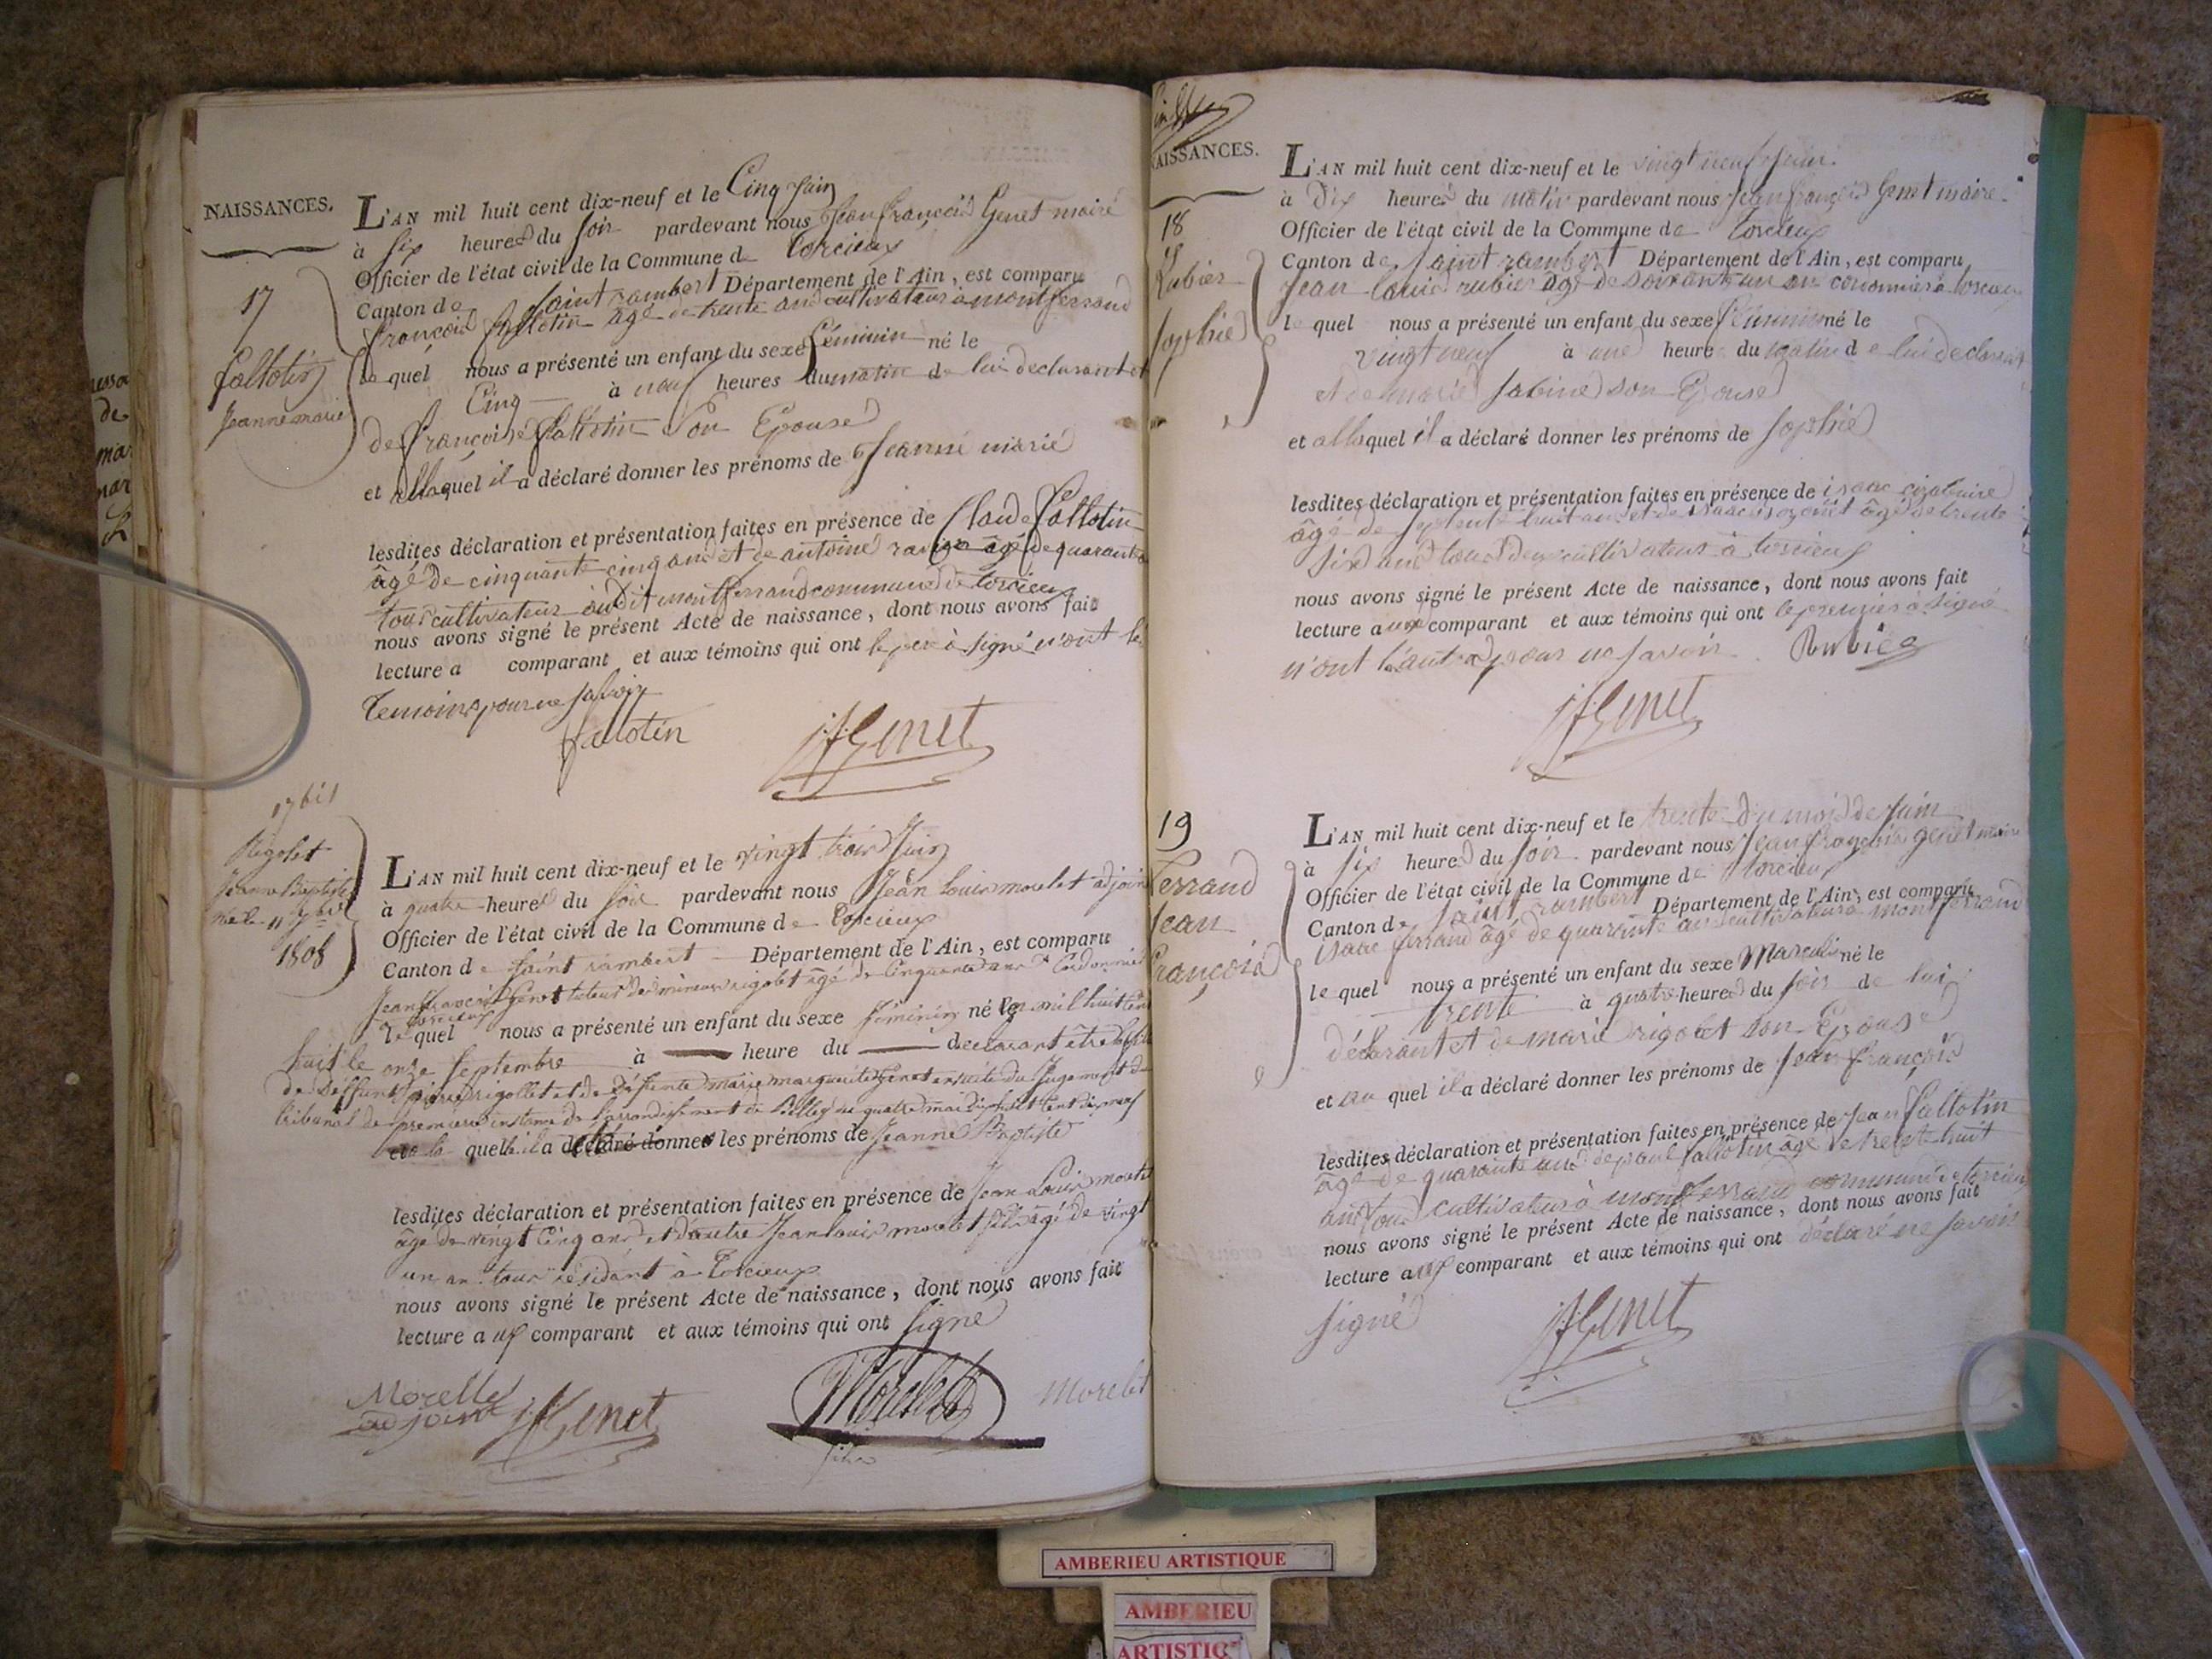 NAISSANCES.
17
fallotin
Jeanne marie
L'AN mil huit cent dix-neuf et le Cinq Juin
à six heures du soir pardevant nous Jean françois Genet maire
Officier de l'état civil de la Commune de torcieux
Canton de saint rambert Département de l'Ain, est comparu
françois fallotin âgé de trente ans cultivateur à montferrand
le quel nous a présenté un enfant du sexe féminin né le
Cinq à neuf heures du matin de lui declarant et
de françoise fallotin Son Epouse
et a la quel il a déclaré donner les prénoms de Jeanne marie
lesdites déclaration et présentation faites en présence de Claude fallotin
âgé de cinquante cinq ans et de antoine âgé de quarante
tous cultivateurs audit montferrand commune de torcieux
nous avons signé le présent Acte de naissance, dont nous avons fait
lecture a comparant et aux témoins qui ont le pere à signé n'ont les
temoins pour ne savoir
falotin
jfGenet
17 bis
Rigolet
Jeanne Baptiste
née le 11 7bre
1808
L'AN mil huit cent dix-neuf et le vingt trois Juin
à quatre heures du soir pardevant nous Jean Louis morelet adjoint
Officier de l'état civil de la Commune de torcieux
Canton de saint rambert Département de l'Ain, est comparu
Jean françois Genet tuteur des mineurs rigolet âgé de Cinquante ans Cordonnier
à torcieux
le quel nous a présenté un enfant du sexe féminin né le mil huit cent
huit le onze septembre à heure du declarant être la fille
de deffunt pierre rigollet et de defunte marie marguerite Genet ensuite du Jugement du
tribunal de premiere instance de l'arrondissement de Belley du quatre mai dix huit Cent dix neuf
et a la quelle il a déclaré donner les prénoms de Jeanne Baptiste
lesdites déclaration et présentation faites en présence de Jean Louis morelet
âgé de vingt Cinq ans et d'autre Jean louis morelet fils âgé de vingt
un an tous residant à torcieux
nous avons signé le présent Acte de naissance, dont nous avons fait
lecture aux comparant et aux témoins qui ont signé
Morelle
adjoint
jfGenet
Morelet
fils
Morelet
NAISSANCES.
18
Rubier
Sophie
L'AN mil huit cent dix-neuf et le vingt neuf Juin
à Dix heures du matin pardevant nous Jean françois Genet maire
Officier de l'état civil de la Commune de torcieux
Canton de saint rambert Département de l'Ain, est comparu
Jean louis rubier âgé de soixante un an à torcieux
le quel nous a présenté un enfant du sexe féminin né le
vingt neuf à une heure du matin de lui declarant
et de marie sabine son Epouse
et a la quel il a déclaré donner les prénoms de Sophie
lesdites déclaration et présentation faites en présence de isaac
âgé de septente huit ans et de âgé de trente
six ans tous deux cultivateurs à torcieux
nous avons signé le présent Acte de naissance, dont nous avons fait
lecture aux comparant et aux témoins qui ont le premier à signé
n'ont l'autre pour ne savoir Rubier
jfGenet
19
ferrand
Jean
françois
L'AN mil huit cent dix-neuf et le trente du mois de Juin
à six heures du soir pardevant nous Jean françois genet maire
Officier de l'état civil de la Commune de torcieux
Canton de saint rambert Département de l'Ain, est comparu
isaac ferrand âgé de quarante ans cultivateur à montferrand
le quel nous a présenté un enfant du sexe Masculin né le
trente à quatre heures du soir de lui
déclarant et de marie rigolet son Epouse
et au quel il a déclaré donner les prénoms de Jean françois
lesdites déclaration et présentation faites en présence de Jean fallotin
âgé de quarante ans de paul fallotin âgé de trente huit
ans tous cultivateurs à montferrand commune de torcieux
nous avons signé le présent Acte de naissance, dont nous avons fait
lecture aux comparant et aux témoins qui ont déclaré ne savoir
signé
jfGenet
AMBERIEU ARTISTIQUE
AMBERIEU
ARTISTIQ